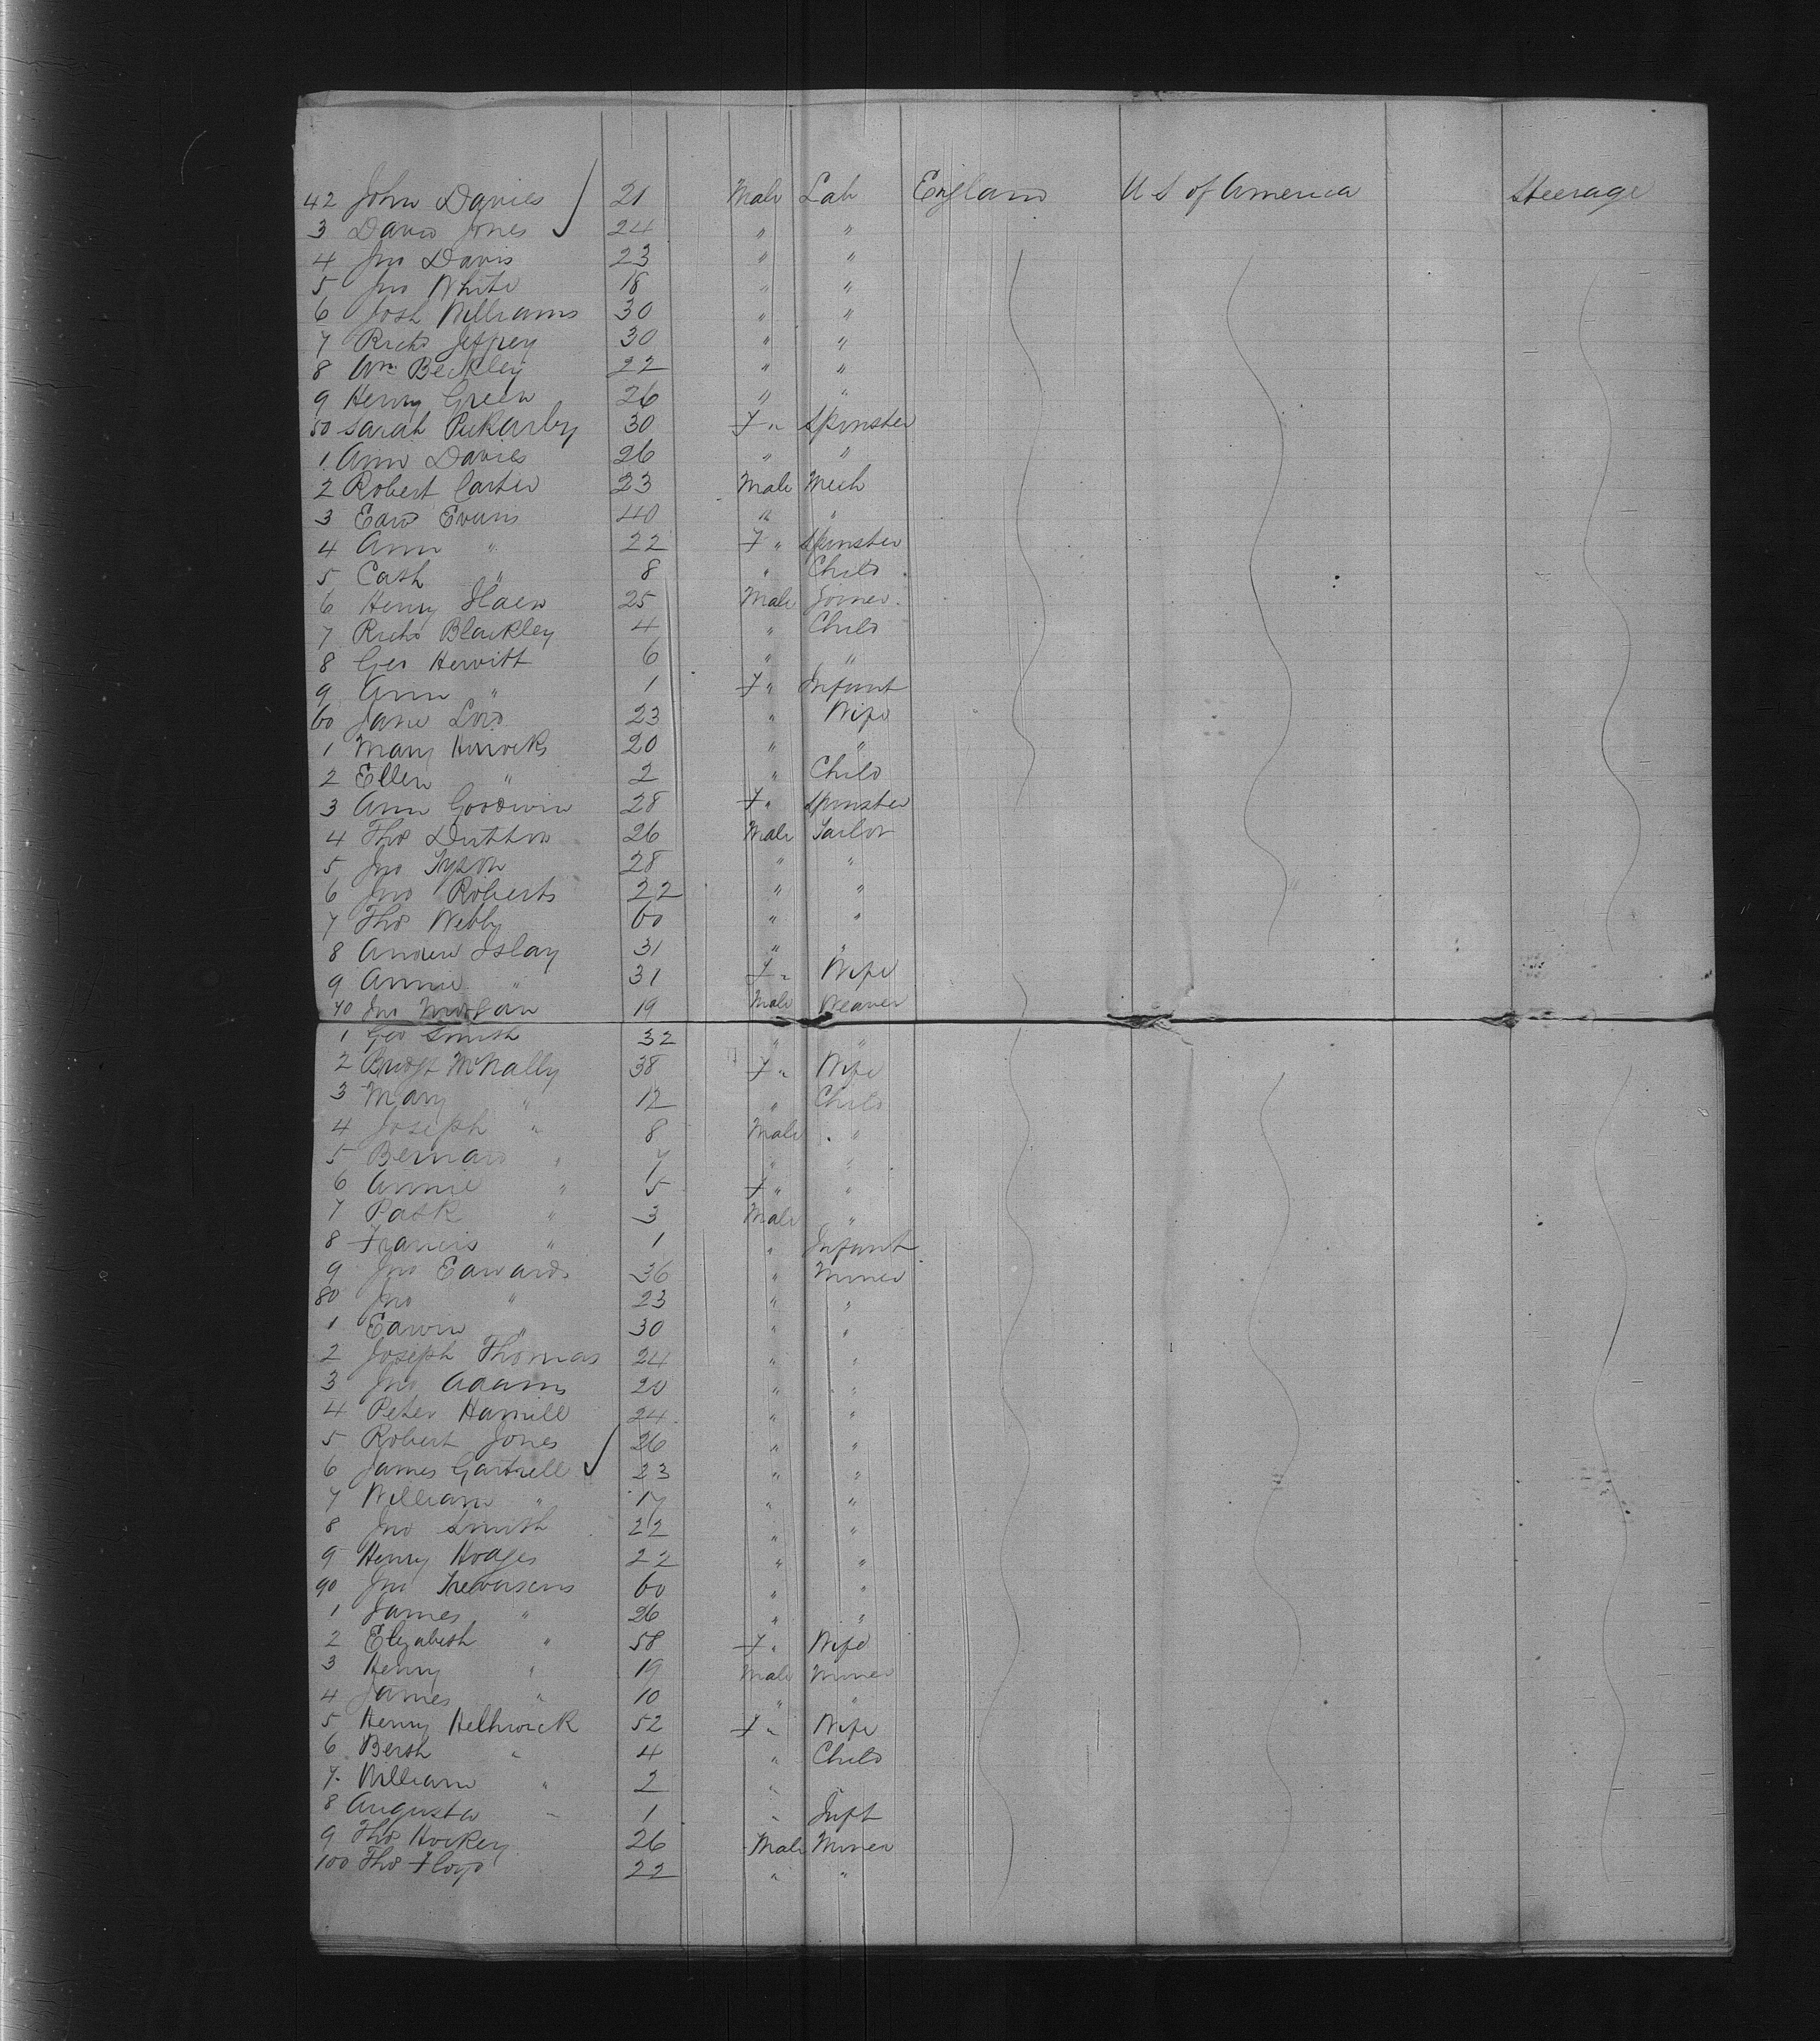 42 John Davies 21 Male Lab England U S of America Steerage
3 David Jones 24 " "
4 Jno Davis 23 " "
5 Jno White 18 " "
6 Josh Williams 30 " "
7 Richd Jeffrey 30 " "
8 Wm Beckley 22 " "
9 Henry Green 26 " "
50 Sarah 30 F " Spinster
1 Ann Davies 26 " "
2 Robert Carter 23 Male Mech
3 Edwd Evans 40 " "
4 Ann " 22 F " Spinster
5 Cath " 8 " Child
6 Henry 25 Male Joiner
7 Richd Blackley 4 " Child
8 Geo Hewitt 6 " "
9 Ann " 1 F " Infant
60 Jane Lord 23 " Wife
1 Mary 20 " "
2 Ellen " 2 " Child
3 Ann Goodwin 28 F " Spinster
4 Thos Dutton 26 Male Tailor
5 Jno Tyson 28 " "
6 Jno Roberts 22 " "
7 Thos Webby 60 " "
8 Andrew Islay 31 " "
9 Annie " 31 F " Wife
70 Jno Morgan 19 Male Weaver
1 Geo Smith 32 " "
2 Bridgt McNally 38 F " Wife
3 Mary " 12 " Child
4 Joseph " 8 Male "
5 Bernard " 7 " "
6 Annie " 5 F " "
7 Patk " 3 Male "
8 Francis " 1 " Infant
9 Jno Edwards 36 " Miner
80 Jno " 23 " "
1 Edwin " 30 " "
2 Joseph Thomas 24 " "
3 Jno Adams 20 " "
4 Peter Hamill 24 " "
5 Robert Jones 26 " "
6 James Gartrell 23 " "
7 William " 17 " "
8 Jno Smith 22 " "
9 Henry Hodges 22 " "
90 Jno 60 " "
1 James " 26 " "
2 Elizabeth " 58 F " Wife
3 Henry " 19 Male Miner
4 James " 10 " "
5 Henry 52 F " Wife
6 Berth " 4 " Child
7 William " 2 "
8 Augusta " 1 " Inft
9 Thos Hockey 26 Male Miner
100 Thos Floyd 22 " "